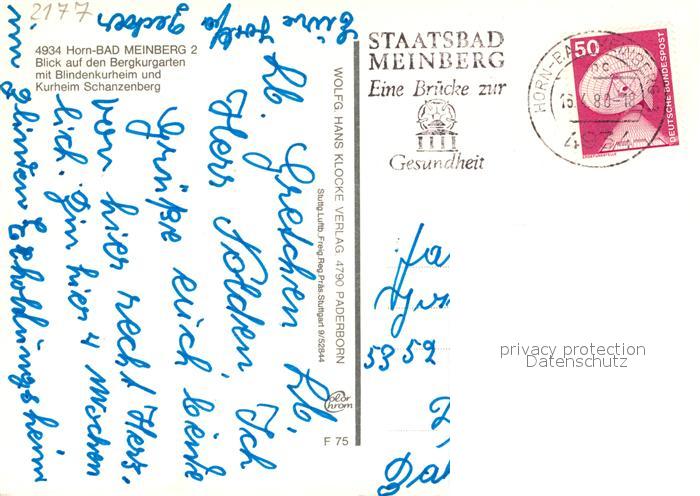 2177
4934 Horn-BAD MEINBERG 2
Blick auf den Bergkurgarten
mit Blindenkurheim und
Kurheim Schanzenberg
WOLFG. HANS KLOCKE VERLAG 4790 PADERBORN
Stuttg.Luftb.Freig.Reg.Präs.Stuttgart 9/52844
Color
chrom
F 75
STAATSBAD
MEINBERG
Eine Brücke zur
Gesundheit
HORN-BAD MEINBERG
4934
50
DEUTSCHE BUNDESPOST
Lb. Gretchen Lb.
Herr Nolden, Ich
Grüße euch beide
von hier recht Herz-
lich. Bin hier 4 Wochen
im Blinden Erholdungsheim
5352
privacy protection
Datenschutz